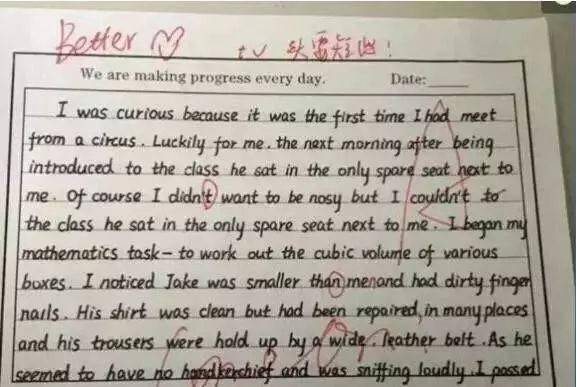 Better
tv 头要短些!
We are making progress every day. Date:
I was curious because it was the first time I had meet
from a circus. Luckily for me. the next morning after being
introduced to the class he sat in the only spare seat next to
me. Of course I didn't want to be nosy but I couldn't to
the class he sat in the only spare seat next to me. I began my
mathematics task-to work out the cubic volume of various
boxes. I noticed Jake was smaller than menand had dirty finger
nails. His shirt was clean but had been repaired, in many places
and his trousers were hold up by a wide. leather belt. As he
seemed to have no handkerchief and was sniffing loudly. I passed